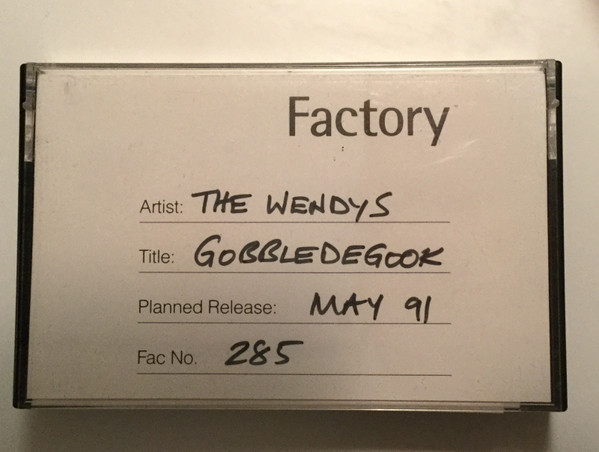 Factory
Artist: THE WENDYS
Title: GOBBLEDEGOOK
Planned Release: MAY 91
Fac No. 285